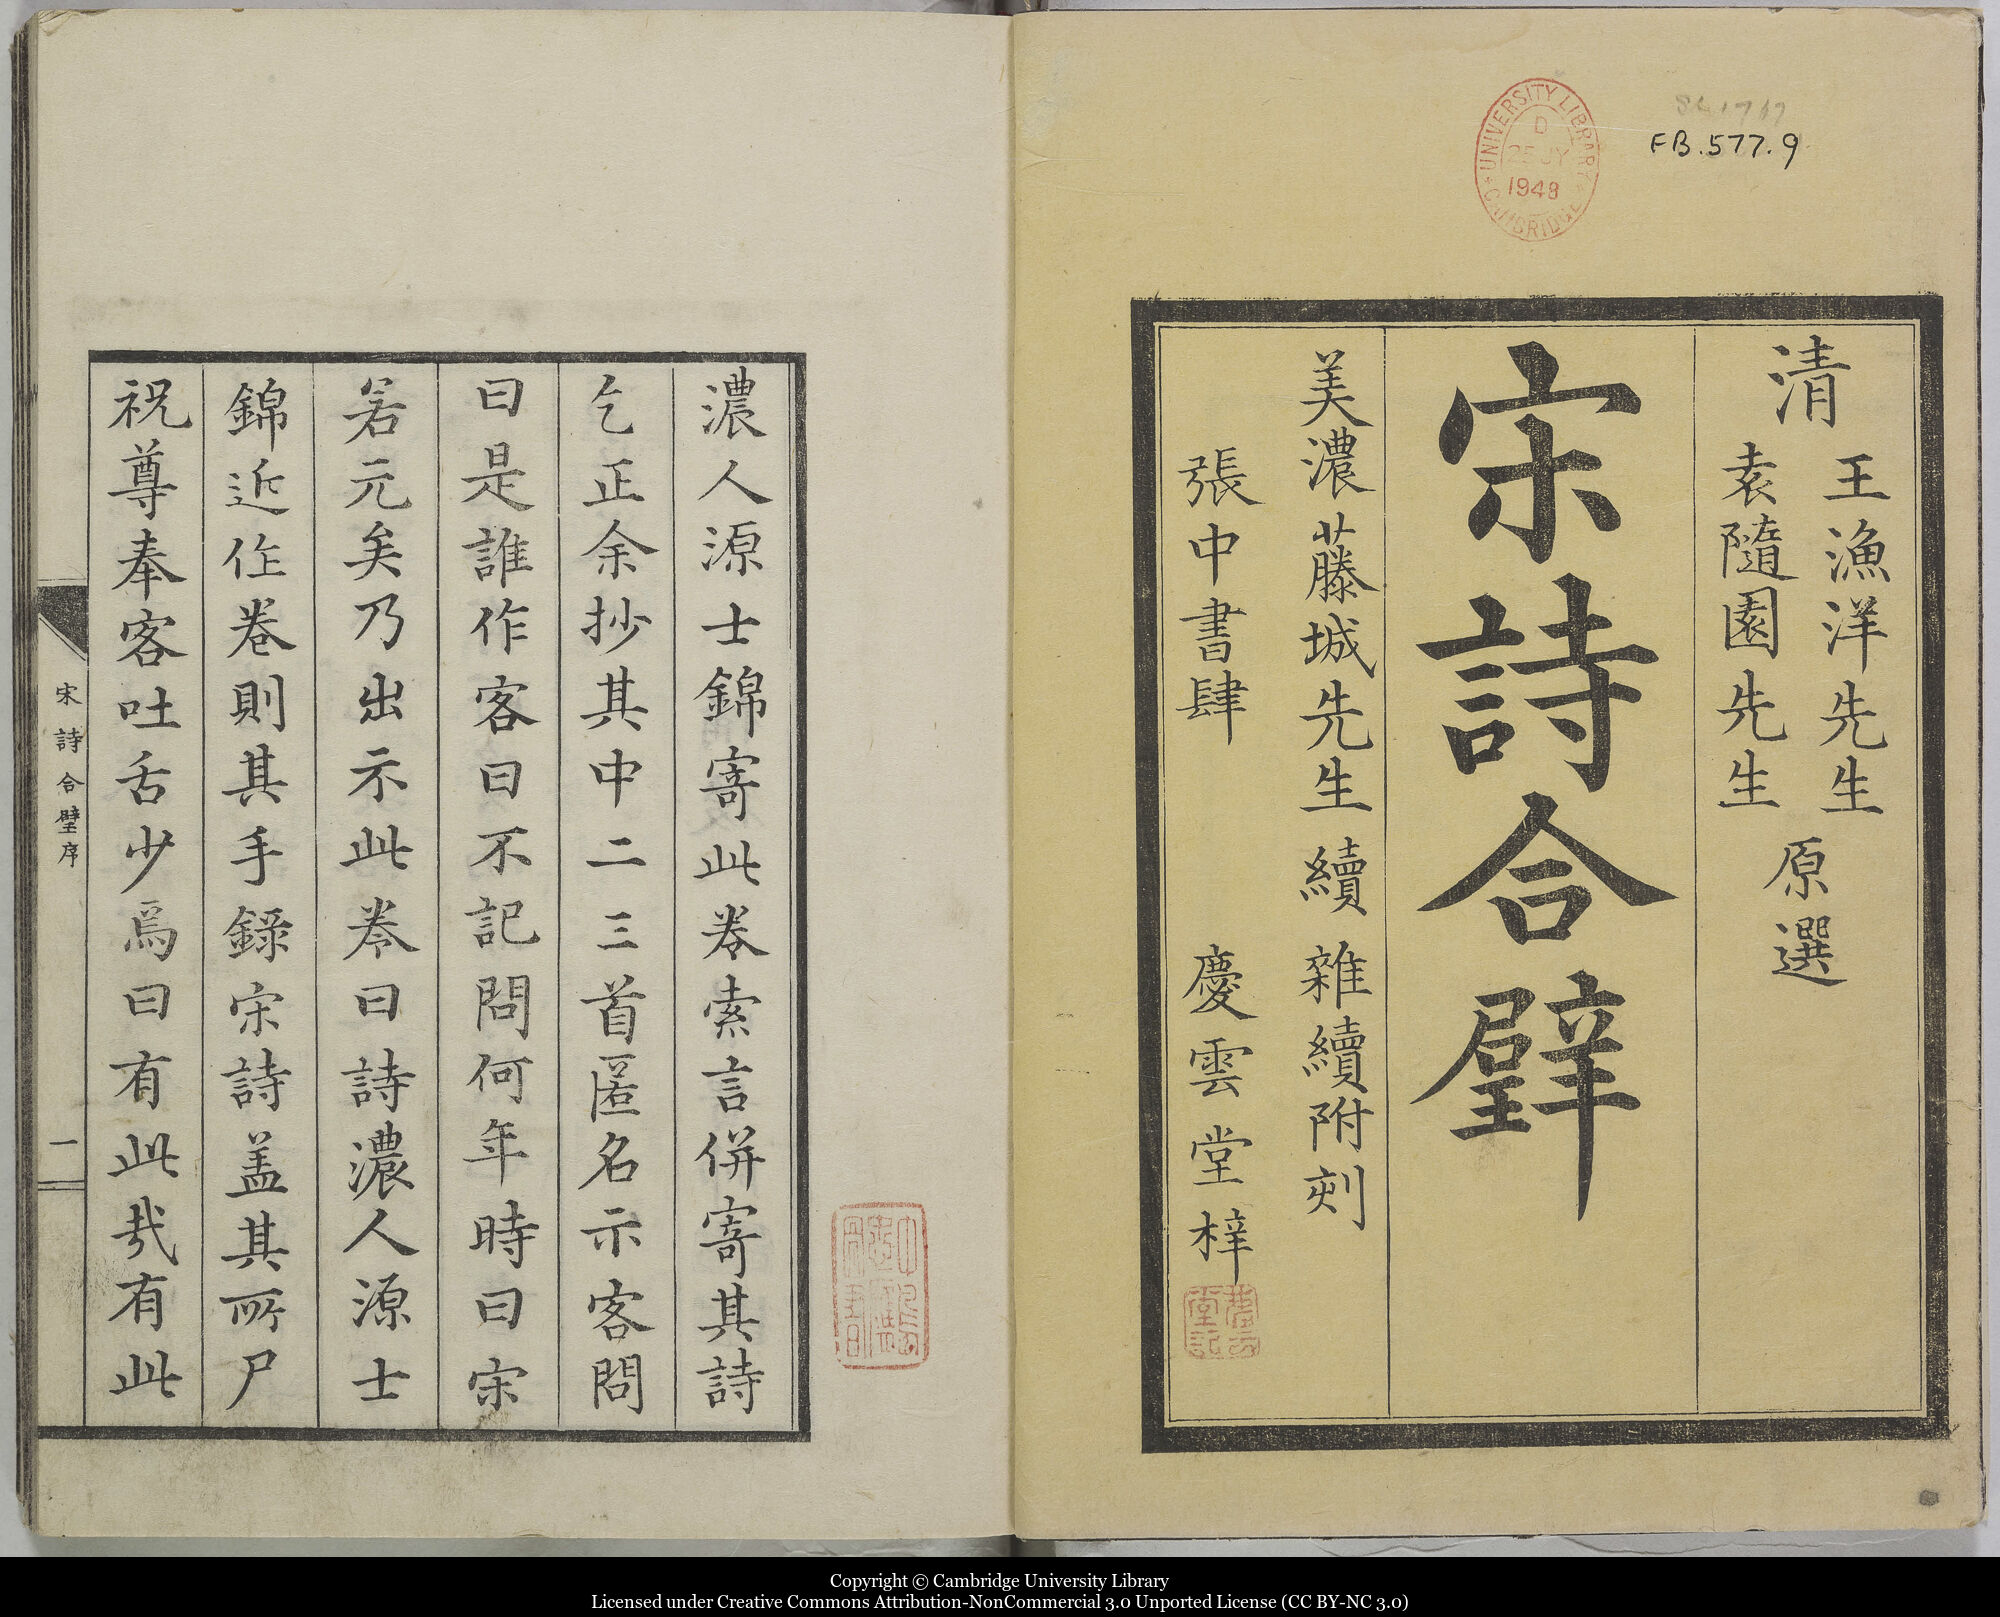 UNIVERSITY LIBRARY
CAMBRIDGE
D
25 JY
1948
FB.577.9
清
王漁洋先生
袁隨園先生
原選
宋詩合璧
美濃藤城先生續雜續附刻
張中書肆 慶雲堂梓
濃人源士錦寄此卷索言併寄其詩
乞正余抄其中二三首匿名示客問
曰是誰作客曰不記問何年時曰宋
若元矣乃出示此卷曰詩濃人源士
錦近作卷則其手錄宋詩盖其所尸
祝尊奉客吐舌少焉曰有此哉有此
宋詩合璧序
一
Copyright © Cambridge University Library
Licensed under Creative Commons Attribution-NonCommercial 3.0 Unported License (CC BY-NC 3.0)